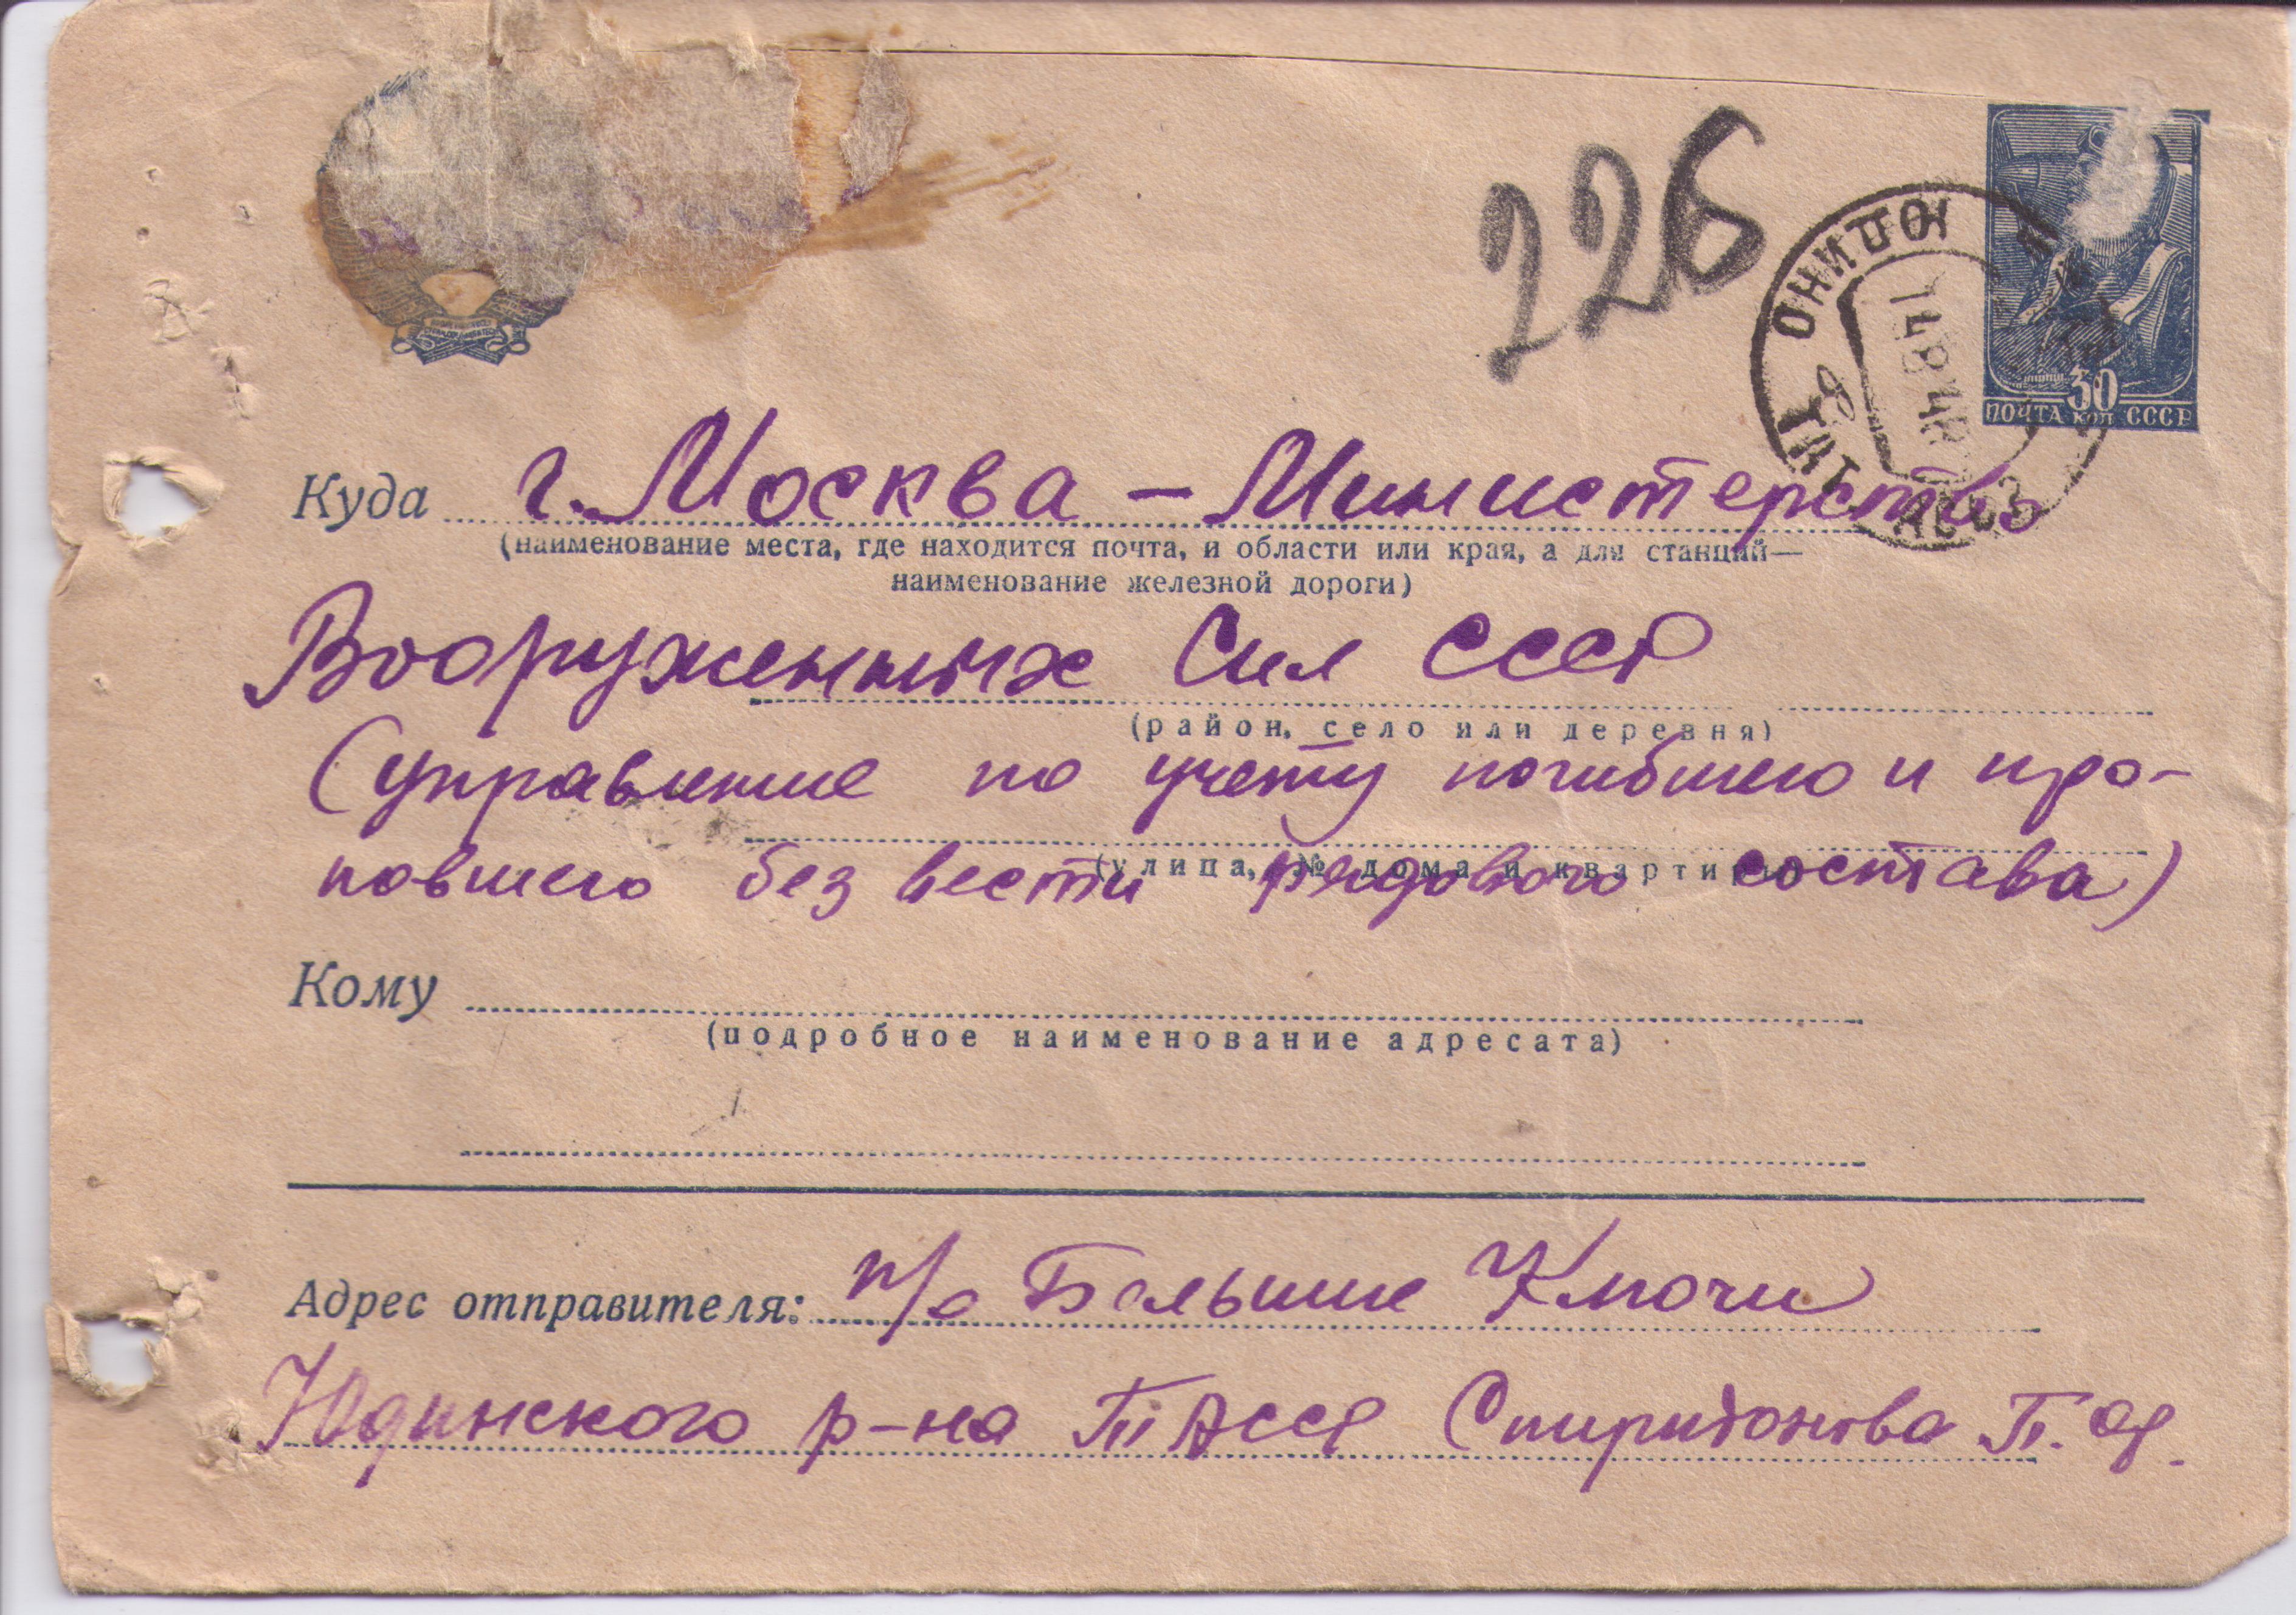 226
30
ПОЧТА КОП СССР
ЮДИНО
Куда г. Москва – Министерство
(наименование места, где находится почта, и области или края, а для станций—
наименование железной дороги)
Вооруженных Сил СССР
(район, село или деревня)
(управление по учету погибшего и про-
(улица, № дома и квартиры)
повшего без вести рядового состава)
Кому
(подробное наименование адресата)
Адрес отправителя: п/о Большие Ключи
Юдинского р-на ТАССР Спиридонова П.